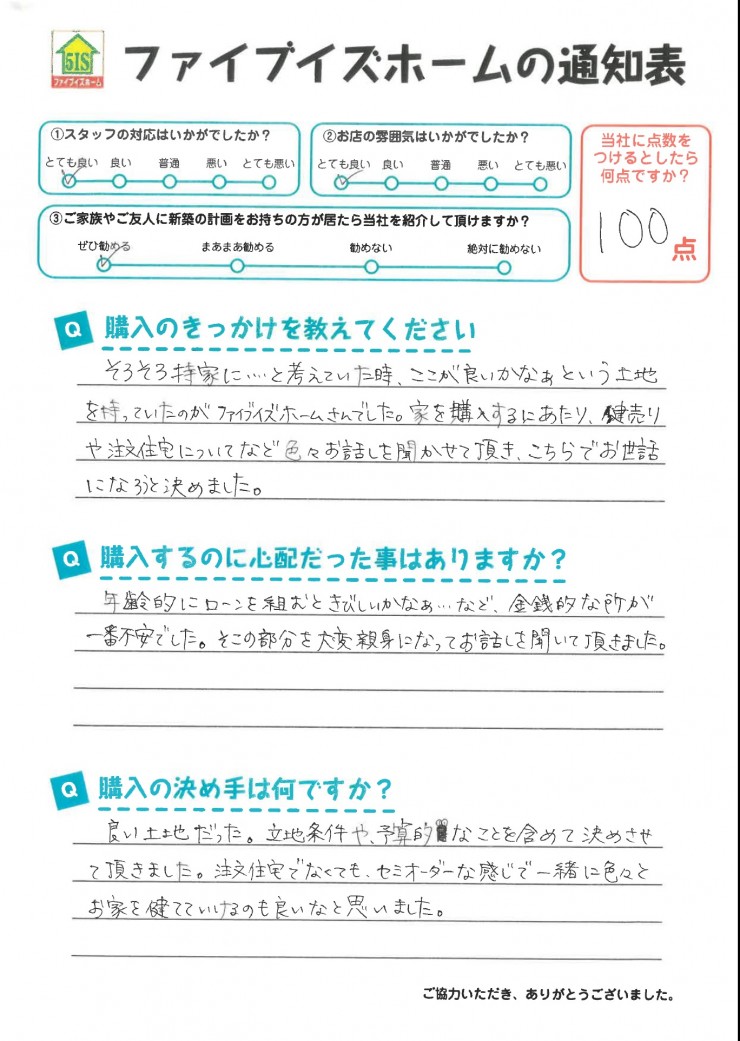 5IS
ファイブイズホーム
ファイブイズホームの通知表
①スタッフの対応はいかがでしたか？
とても良い 良い 普通 悪い とても悪い
②お店の雰囲気はいかがでしたか？
とても良い 良い 普通 悪い とても悪い
③ご家族やご友人に新築の計画をお持ちの方が居たら当社を紹介して頂けますか？
ぜひ勧める まあまあ勧める 勧めない 絶対に勧めない
当社に点数を
つけるとしたら
何点ですか？
100点
Q 購入のきっかけを教えてください
そろそろ持家に…と考えていた時、ここが良いかなぁという土地
を持っていたのがファイブイズホームさんでした。家を購入するにあたり、建売り
や注文住宅についてなど色々お話しを聞かせて頂き、こちらでお世話
になろうと決めました。
Q 購入するのに心配だった事はありますか？
年齢的にローンを組むときびしいかなぁ…など、金銭的な所が
一番不安でした。そこの部分を大変親身になってお話しを聞いて頂きました。
Q 購入の決め手は何ですか？
良い土地だった。立地条件や、予算的なことを含めて決めさせ
て頂きました。注文住宅でなくても、セミオーダーな感じで一緒に色々と
お家を建てていけるのも良いなと思いました。
ご協力いただき、ありがとうございました。